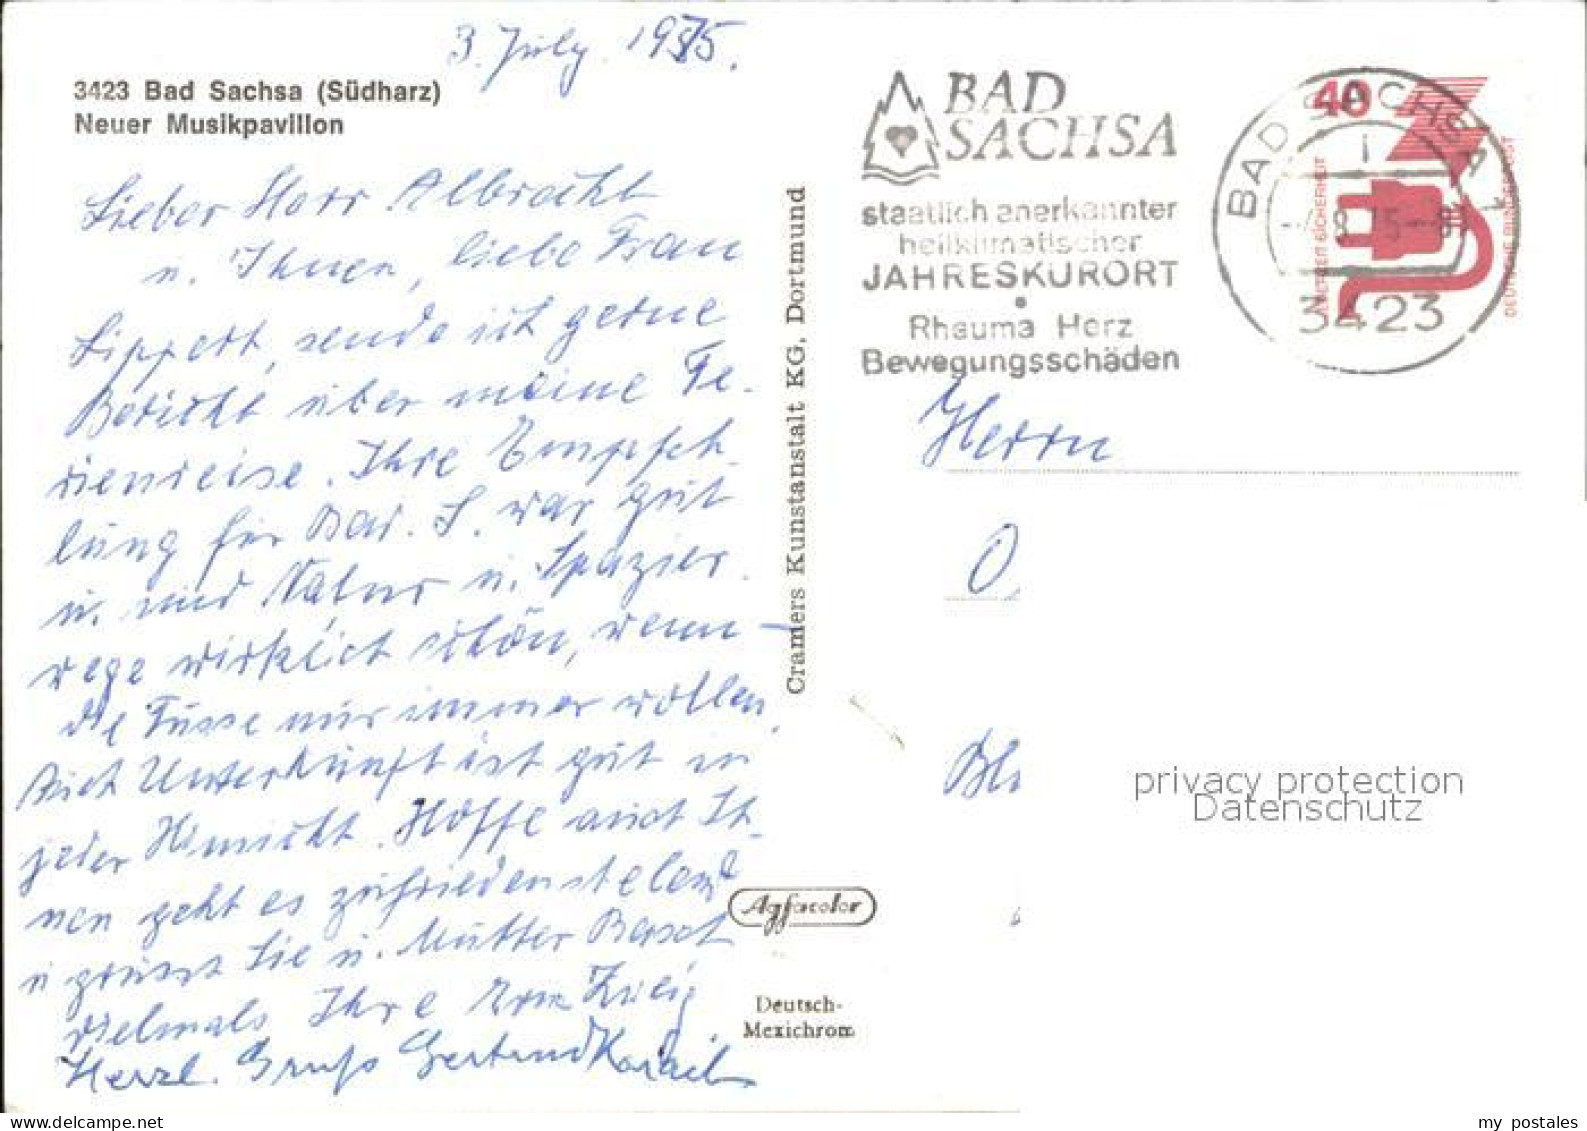 3. July 1975.
3423 Bad Sachsa (Südharz)
Neuer Musikpavillon
Lieber Herr Albrecht
u. Ihnen, liebe Frau
Lippert, sende ich gerne
Bericht über meine Fe-
rienreise. Ihre Empfeh-
lung für Bad. S. war gut
u. sind Natur u. Spazier-
wege wirklich schön, wenn
die Füsse nur immer wollen.
Auch Unterkunft ist gut in
jeder Hinsicht. Hoffe auch Ih-
nen geht es zufriedenstelend
u grüsst Sie u. Mutter
vielmals Ihre
Herzl. Gruß Gertrud
Cramers Kunstanstalt KG, Dortmund
Agfacolor
Deutsch-
Mexichrom
BAD
SACHSA
staatlich anerkannter
heilklimatischer
JAHRESKURORT
Rheuma Herz
Bewegungsschäden
BAD SACHSA
3423
40
JEDERZEIT SICHERHEIT
DEUTSCHE BUNDESPOST
Herrn
O
privacy protection
Datenschutz
my postales